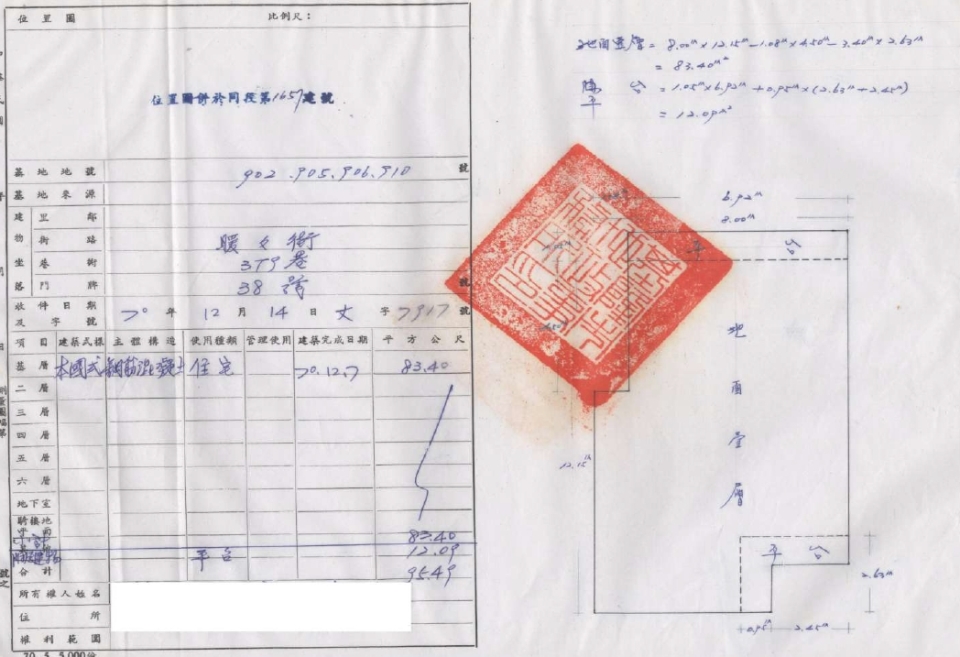 位置圖 比例尺:
位置圖詳於同段第1657建號
基地地號 902.905.906.910 號
基地來源
建 里 鄰
物 街 路 暖暖街
坐 巷 衖 379巷
落 門 牌 38號 號
收件日期
及字號 70年12月14日文字7917號
項目 建築式樣 主體構造 使用種類 管理使用 建築完成日期 平方公尺
基層 本國式 鋼筋混凝土 住宅 70.12.7 83.40
二層
三層
四層
五層
六層
地下室
騎樓地
平面
83.40
平台 12.09
合計 95.49
所有權人姓名
住所
權利範圍
70. 5. 5,000份
地面壹層 = 8.00ᵐ×12.15ᵐ-1.08ᵐ×4.50ᵐ-3.40ᵐ×2.63ᵐ
= 83.40ᵐ²
平台 = 1.05ᵐ×6.92ᵐ+0.95ᵐ×(2.63ᵐ+2.45ᵐ)
= 12.09ᵐ²
6.92ᵐ
8.00ᵐ
平台
地面壹層
12.15ᵐ
平台
2.63ᵐ
0.95ᵐ 2.45ᵐ